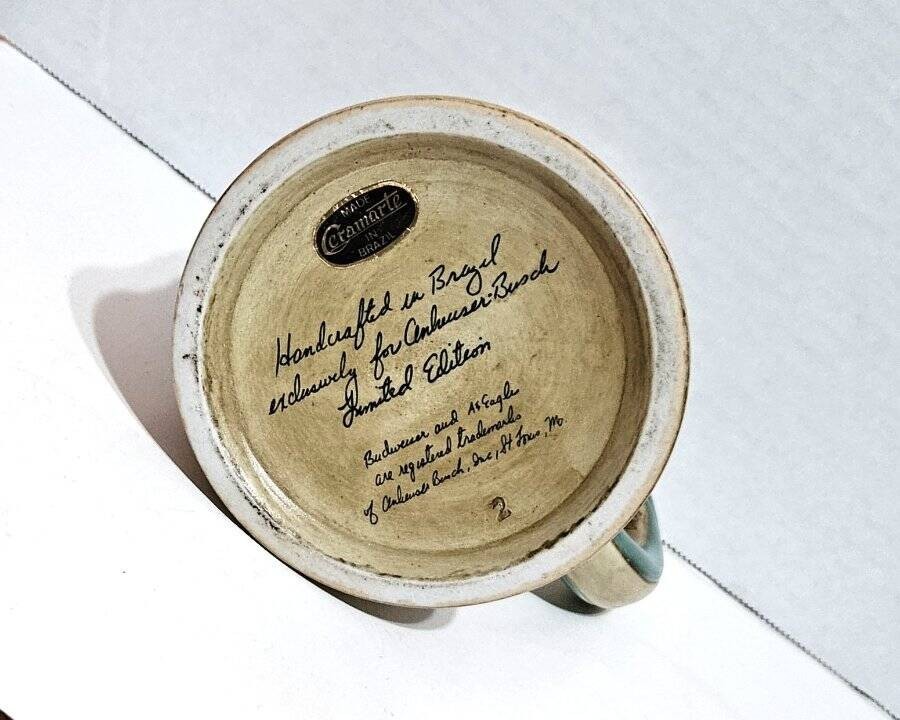 MADE
Ceramarte
IN
BRAZIL
Handcrafted in Brazil
exclusively for Anheuser-Busch
Limited Edition
Budweiser and A&Eagle
are registered trademarks
of Anheuser Busch, Inc, St Louis, Mo.
2